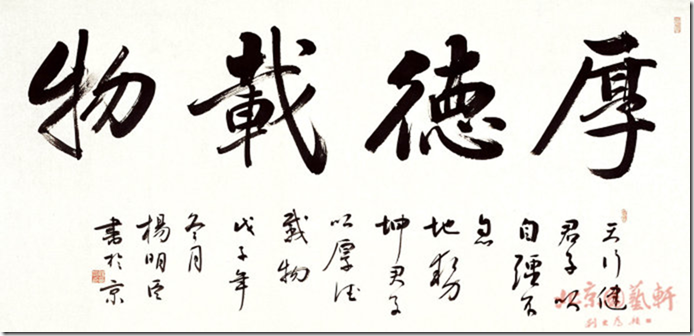 厚德載物
天行健
君子以
自彊不
息
地勢
坤君子
以厚德
載物
戊子年
冬月
楊明臣
書於京